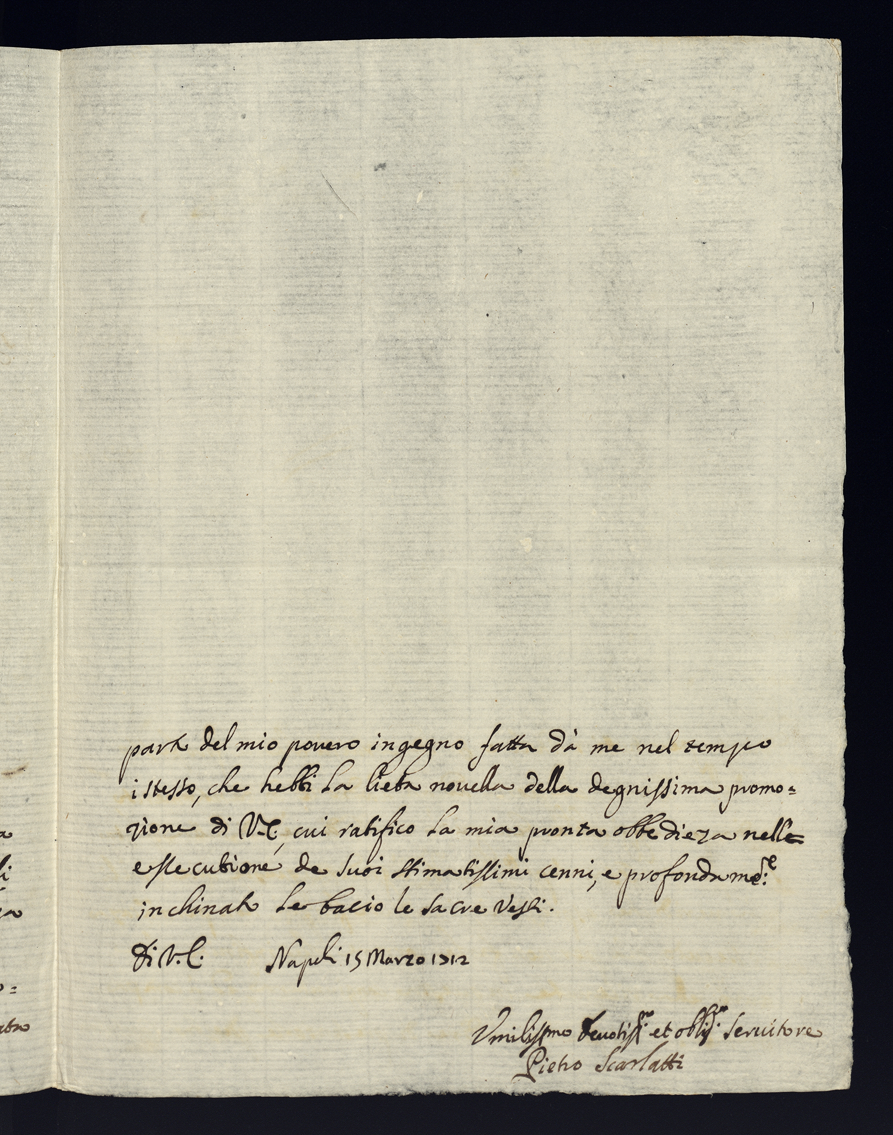 parto del mio povero ingegno fatto dà me nel tempo
istesso, che hebbi la lieta novella della degnissima promo=
zione di V.E., cui ratifico la mia pronta obbedieza nelle
essecutione de suoi stimatissimi cenni, e profondam.te
inchinato le bacio le sacre vesti.
Di V.E. Napoli 15 Marzo 1712
Vmilissmo deuotiss.mo et obblig.mo Seruitore
Pietro Scarlatti